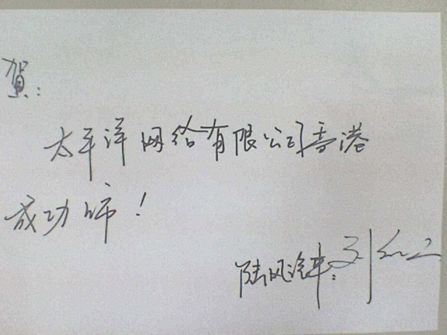 賀：
太平洋网络有限公司香港
成功上市！
陆风汽车：刘